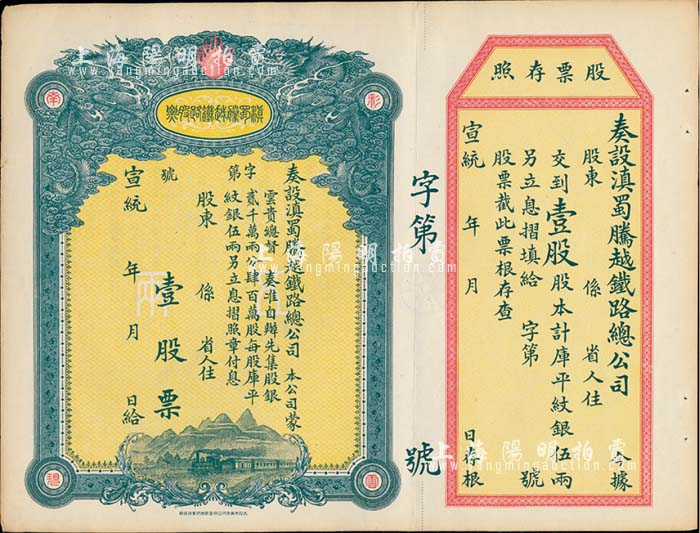 股票存照
奏設滇蜀騰越鐵路總公司 今據
股東 係 省人住
交到壹股股本計庫平紋銀伍兩
另立息摺填給 字第 號
股票截此票根存查
宣統 年 月 日存根
字第 號
滇蜀騰越鐵路股票
奏設滇蜀騰越鐵路總公司 本公司蒙
雲貴總督 奏准自辦先集股銀
貳千萬兩分肆百萬股每股庫平
紋銀伍兩另立息摺照章付息
字第 號
股東 係 省人住
壹股票
宣統 年 月 日給
彩
南
雲
上海陽明拍賣
www.yangmingauction.com
上海陽明拍賣
www.yangmingauction.com
上海陽明拍賣
www.yangmingauction.com
上海陽明拍賣
www.yangmingauction.com